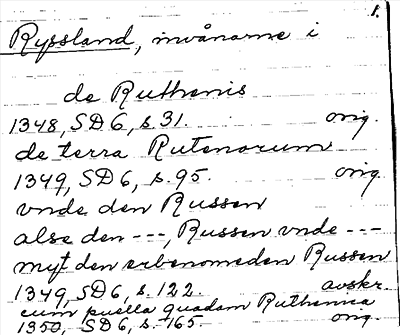 1.
Ryssland, invånarne i
de Ruthenis
1348, SD6, s. 31. orig.
de terra Rutenorum
1349, SD6, s. 95. orig.
vnde den Russen
alse den ---, Russen vnde ---
myt den erbenomeden Russen
1349, SD6, s. 122. avskr.
cum puella quadam Ruthenica
1350, SD6, s. 165. orig.